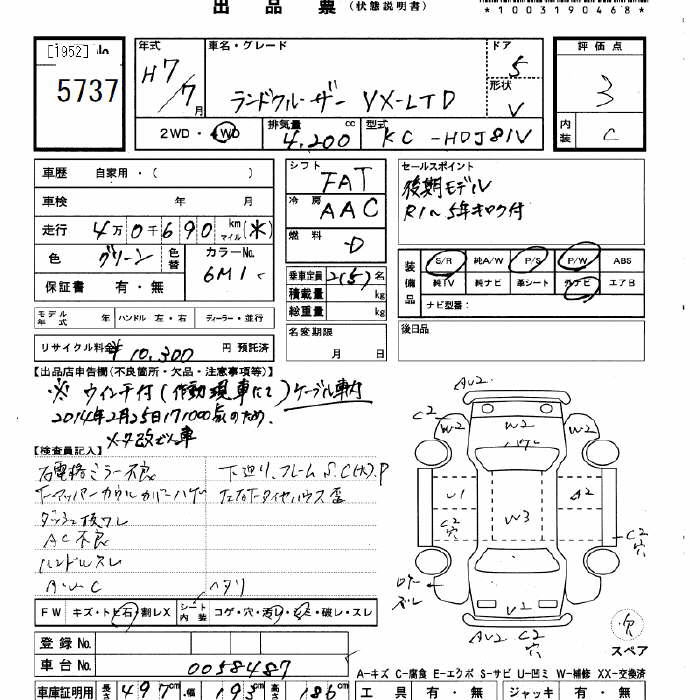 出品票（状態説明書）
*1003190468*
[1952] No.
5737
年式
H7/7月
車名・グレード
ランドクルーザー VX-LTD
ドア
5
形状
V
評価点
3
内装
C
2WD・4WD
排気量 cc
4.200
型式
KC-HDJ81V
車歴 自家用・( )
車検 年 月
走行 4万0千690 km マイル (米)
色 グリーン 色替 カラーNo. 6M1
保証書 有・無
シフト
FAT
冷房
AAC
燃料
D
乗車定員 2(5)名
積載量 kg
総重量 kg
セールスポイント
後期モデル
R1〜5年キロク付
装備品
S/R 純A/W P/S P/W ABS
純TV 純ナビ 革シート 外ナビ エアB
ナビ型番：
モデル年式 年 ハンドル 左・右 ディーラー・並行
名変期限
月 日
後日品
リサイクル料金 ¥10,300 円 預託済
【出品店申告欄(不良箇所・欠品・注意事項等)】
※ ウィンチ付(作動現車にて)ケーブル車内
2014年2月25日171000km のため、
メタ改ざん車
【検査員記入】
右電格ミラー不良
下廻り、フレームS.C(大).P
Fアッパーカウルカバーハゲ
左右Fタイヤハウス歪
ダッシュ板ワレ
AC不良
ハンドルスレ
ヘタリ
FW キズ・トビ石・割レX シート内装 コゲ・穴・汚レ・シミ・破レ・スレ
登録No.
車台No. 0058487
車庫証明用 長さ 497cm 幅 193cm 高さ 186cm
AU2
C2
W2
W2
W2
U1
A2
W3
C2
穴
C2
穴
U2
AU2
C2
穴
穴
スペア
A-キズ C-腐食 E-エクボ S-サビ U-凹ミ W-補修 XX-交換済
工具 有・無 ジャッキ 有・無